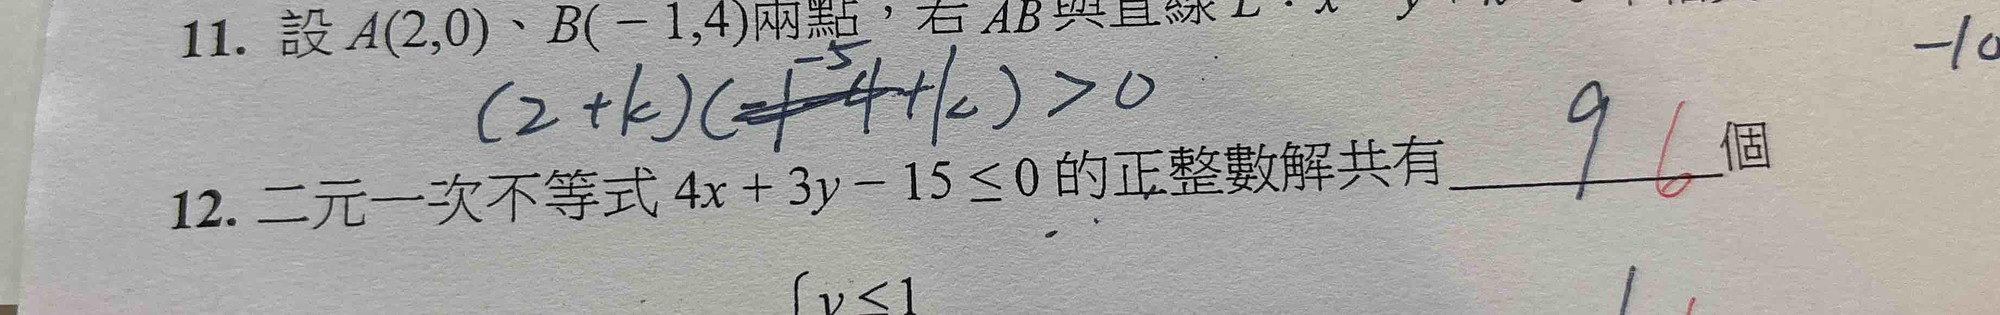 11. 設 A(2,0)、B(-1,4)兩點,若 AB與直線 L:x
-10
(2+k)(-5+k)>0
12. 二元一次不等式 4x+3y-15≤0 的正整數解共有 9 6 個
y≤1